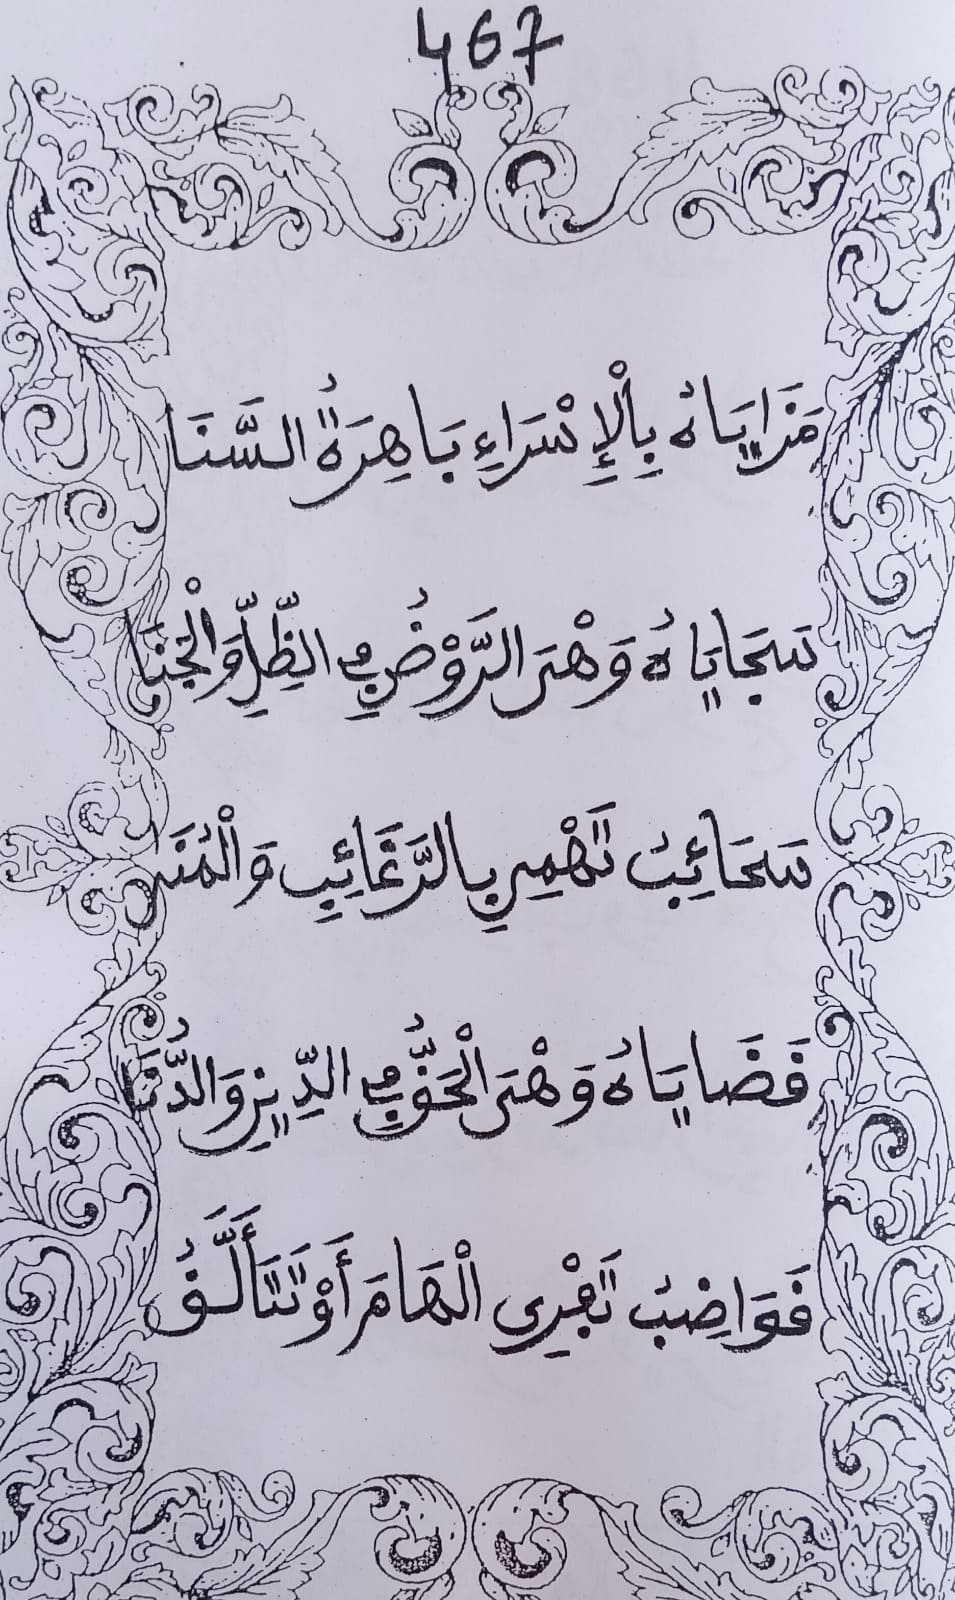 467
مَزَايَاهُ بِالْإِسْرَاءِ بَاهِرَةُ السَّنَا
سَجَايَاهُ وَهْيَ الرَّوْضُ فِي الظِّلِّ وَالْجَنَا
سَحَائِبُ تَهْمِي بِالرَّغَائِبِ وَالْمُنَى
قَضَايَاهُ وَهْيَ الْحَقُّ فِي الدِّينِ وَالدُّنَا
قَوَاضِبُ تَفْرِي الْهَامَ أَوْ تَتَأَلَّقُ